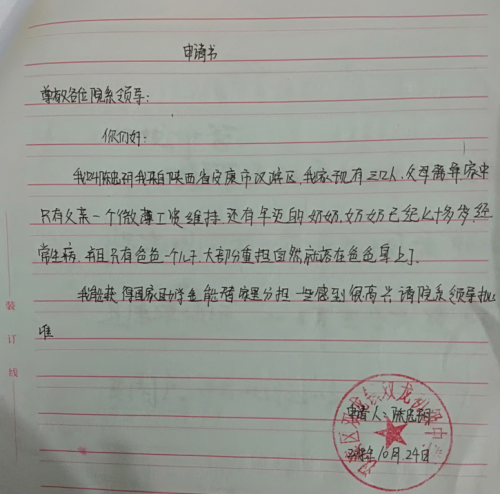 申请书
尊敬各位院系领导:
你们好:
我叫陈忠明我来自陕西省安康市汉滨区,我家现有三口人,父母离异家中
只有父亲一个微薄工资维持.还有年迈的奶奶,奶奶已经七十多岁,经
常生病,并且只有爸爸一个儿子.大部分重担自然就落在爸爸身上了.
我能获得国家助学金能替家里分担一些感到很高兴请院系领导批
准
装
订
线
申请人:陈忠明
10月.24日